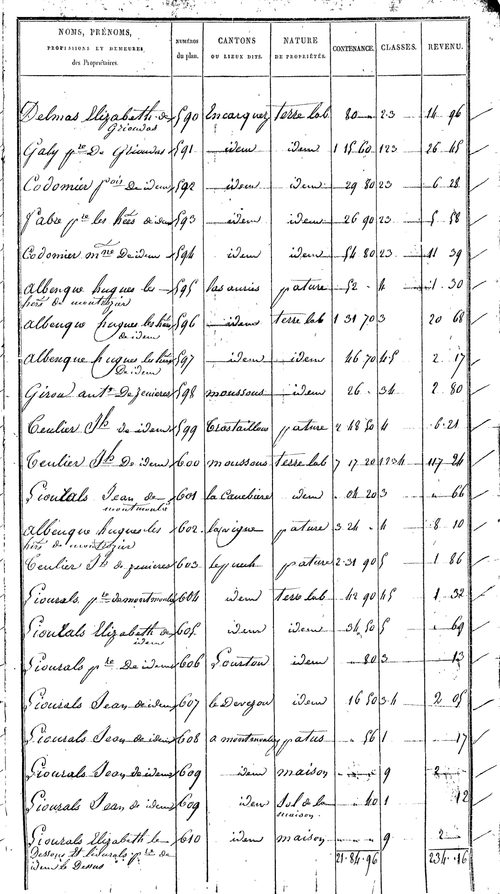 NOMS, PRÉNOMS, PROFESSIONS ET DEMEURES, des Propriétaires. NUMÉROS du plan. CANTONS OU LIEUX DITS. NATURE DE PROPRIÉTÉS. CONTENANCE. CLASSES. REVENU.
Delmas Elizabeth de Grioudas 590 Encarquez terre lab 80 23 14 96
Galy pre De Grioudas 591 idem idem 1 15 60 123 26 45
Codomier fois De idem 592 idem idem 29 80 23 6 28
Fabre pre les hers de idem 593 idem idem 26 90 23 5 58
Codomier De idem 594 idem idem 54 80 23 11 39
albenque hugues les hers de montezier 595 las pature 52 4 1 30
albenque hugues les hers De idem 596 idem terre lab 1 31 70 3 20 68
albenque hugues les hers De idem 597 idem idem 46 70 45 2 17
Girou ant. De Jenieres 598 moussous idem 26 34 2 80
Teulier Jh de idem 599 pature 2 48 50 4 6 21
Teulier Jh De idem 600 moussous terre lab 7 17 20 1234 117 24
Liourals Jean de montmouton 601 idem 04 20 3 66
albenque hugues les hers de montezier 602 lavigne pature 3 24 4 8 10
Teulier Jh de jenieres 603 le puech pature 2 31 90 5 1 86
Liourals pre 604 idem terre lab 42 90 45 1 32
Liourals Elizabeth de idem 605 idem idem 34 50 5 69
Liourals pre De idem 606 idem 80 3 13
Liourals Jean de idem 607 idem 16 50 34 2 05
Liourals Jean de idem 608 patus 56 1 17
Liourals Jean de idem 609 idem maison 9 2
Liourals Jean de idem 609 idem Sol de la maison 40 1 12
Liourals Elizabeth le Dessous et Liourals pre de idem le Dessus 610 idem maison 9 2
21.84.96 234.16